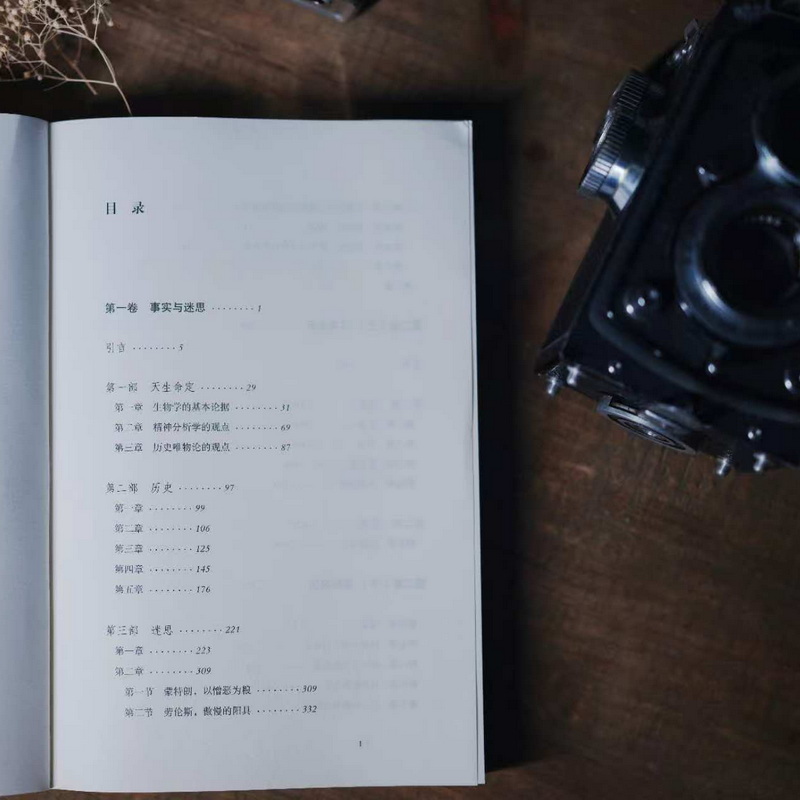 目录
第一卷 事实与迷思 ········ 1
引言 ········ 5
第一部 天生命定 ········ 29
第一章 生物学的基本论据 ········ 31
第二章 精神分析学的观点 ········ 69
第三章 历史唯物论的观点 ········ 87
第二部 历史 ········ 97
第一章 ········ 99
第二章 ········ 106
第三章 ········ 125
第四章 ········ 145
第五章 ········ 176
第三部 迷思 ········ 221
第一章 ········ 223
第二章 ········ 309
第一节 蒙特朗，以憎恶为粮 ········ 309
第二节 劳伦斯，傲慢的阳具 ········ 332
1